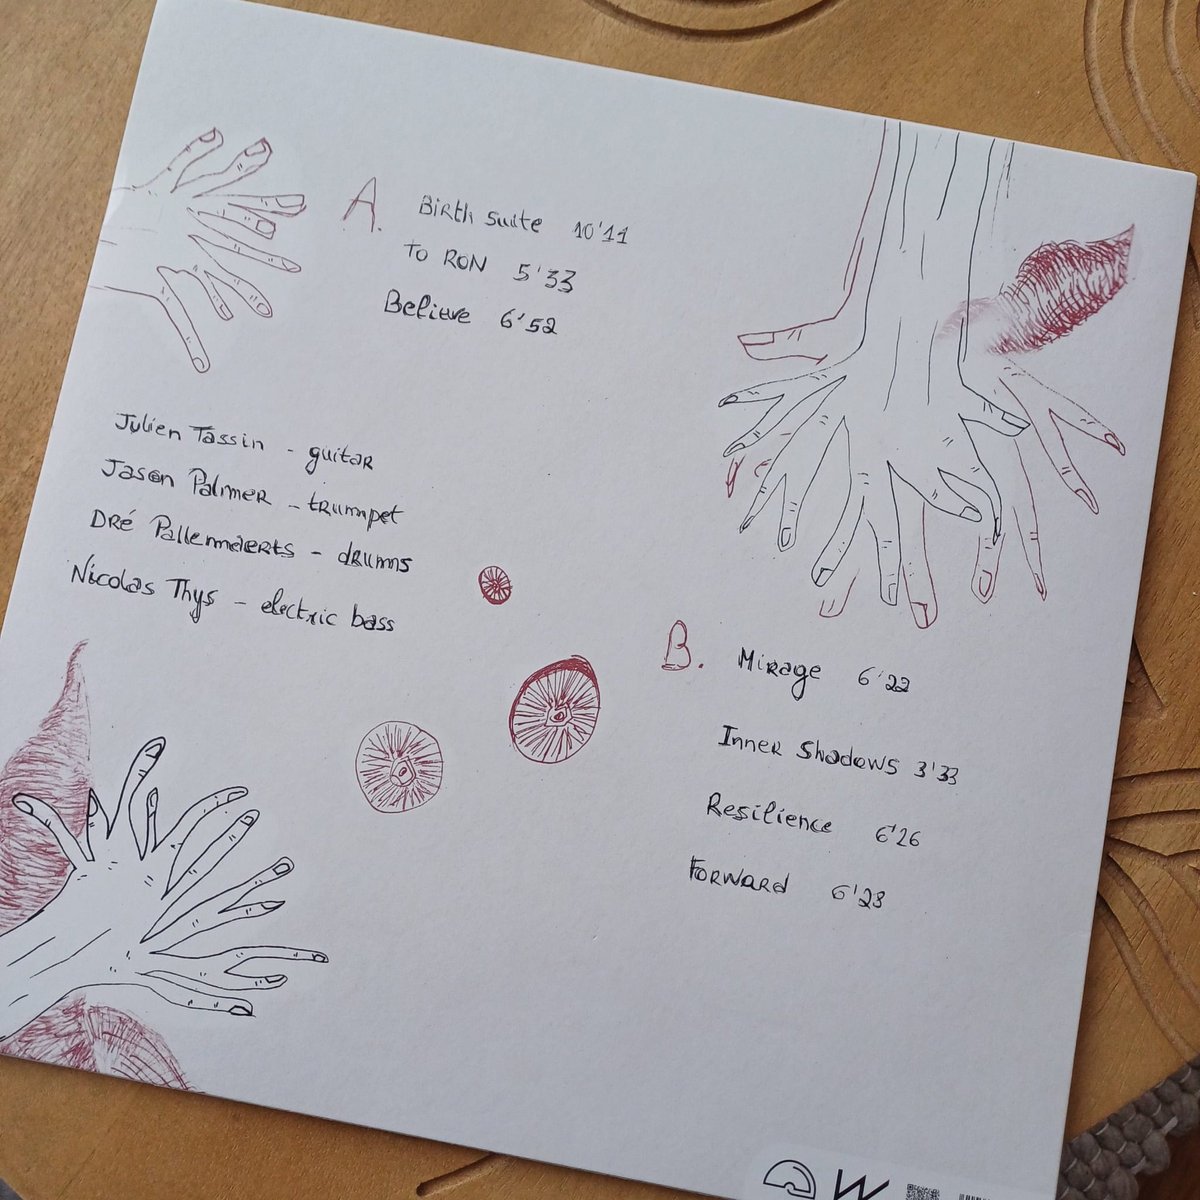 A. Birth Suite 10'11
To Ron 5'33
Believe 6'52
Julien Tassin - guitar
Jason Palmer - trumpet
Dré Pallemaerts - drums
Nicolas Thys - electric bass
B. Mirage 6'22
Inner Shadows 3'33
Resilience 6'26
Forward 6'23
W